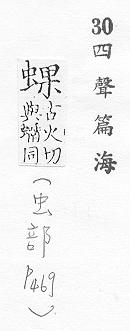 30 四聲篇海
蜾
古火切
與同
(虫部 P469)